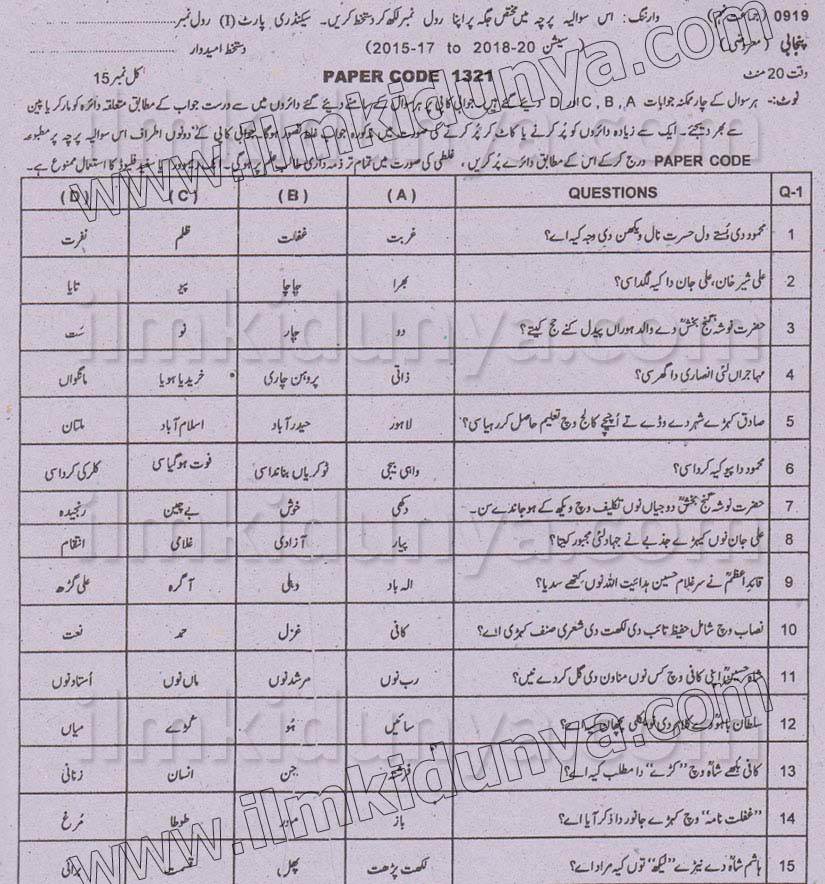 0919 (جماعت نہم) وارننگ: اس سوالیہ پرچہ میں مختص جگہ پر اپنا رول نمبر لکھ کر دستخط کریں۔ سیکنڈری پارٹ (I) رول نمبر
پنجابی (معروضی) (سیشن 20-2018 to 2015-17) دستخط امیدوار
وقت 20 منٹ PAPER CODE 1321 کل نمبر 15
نوٹ:- ہر سوال کے چار ممکنہ جوابات C, B, A اور D دیئے گئے ہیں۔ جوابی کاپی پر ہر سوال کے سامنے دیئے گئے دائروں میں سے درست جواب کے مطابق متعلقہ دائرہ کو مارکر یا پین
سے بھر دیجئے۔ ایک سے زیادہ دائروں کو پُر کرنے یا کاٹ کر پُر کرنے کی صورت میں مذکورہ جواب غلط تصور ہوگا۔ جوابی کاپی کے دونوں اطراف اس سوالیہ پرچہ پر مطبوعہ
PAPER CODE درج کر کے اس کے مطابق دائرے پُر کریں، غلطی کی صورت میں تمام تر ذمہ داری طالب علم پر ہوگی۔ انک ریموور یا سفید فلیوڈ کا استعمال ممنوع ہے۔
Q-1 QUESTIONS (A) (B) (C) (D)
1 محمود دی بستے ول حسرت نال ویکھن دی وجہ کیہ اے؟ غربت غفلت ظلم نفرت
2 علی شیر خان، علی جان دا کیہ لگدا سی؟ بھرا چاچا پیو تایا
3 حضرت نوشہ گنج بخشؒ دے والد ہوراں پیدل کنے حج کیتے؟ دو چار نو ست
4 مہاجراں لئی انصاری دا گھر سی؟ ذاتی پروہن چاری خریدیا ہویا مانگواں
5 صادق کہڑے شہر دے وڈے تے اُچیچے کالج وچ تعلیم حاصل کر رہیا سی؟ لاہور حیدرآباد اسلام آباد ملتان
6 محمود دا پیو کیہ کردا سی؟ واہی بیجی ٹوکریاں بناندا سی فوت ہو گیا سی کلرکی کردا سی
7 حضرت نوشہ گنج بخشؒ دوجیاں نوں تکلیف وچ ویکھ کے ہو جاندے سن۔ دکھی خوش بے چین رنجیدہ
8 علی جان نوں کیہڑے جذبے نے جہاد لئی مجبور کیتا؟ پیار آزادی غلامی انتقام
9 قائد اعظمؒ نے سر غلام حسین ہدائیت اللہ نوں کتھے سدیا؟ الہ باد دہلی آگرہ علی گڑھ
10 نصاب وچ شامل حفیظ تائب دی لکھت دی شعری صنف کہڑی اے؟ کافی غزل حمد نعت
11 شاہ حسینؒ اپنی کافی وچ کس نوں مناون دی گل کردے نیں؟ رب نوں مرشد نوں ماں نوں اُستاد نوں
12 سلطان باہوؒ دے کلام دی نویکلی پچھان کیہ اے؟ سائیں ہُو میاں
13 کافی بلھے شاہؒ وچ "کڑے" دا مطلب کیہ اے؟ فرشتہ جن انسان زنانی
14 "غفلت نامہ" وچ کہڑے جانور دا ذکر آیا اے؟ باز مور طوطا مُرغ
15 ہاشم شاہؒ دے نیڑے "لیکھ" توں کیہ مراد اے؟ لکھت پڑھت پھل قسمت برائی
www.ilmkidunya.com
www.ilmkidunya.com
ilmkidunya.com
ilmkidunya.com
ilmkidunya.com
ilmkidunya.com